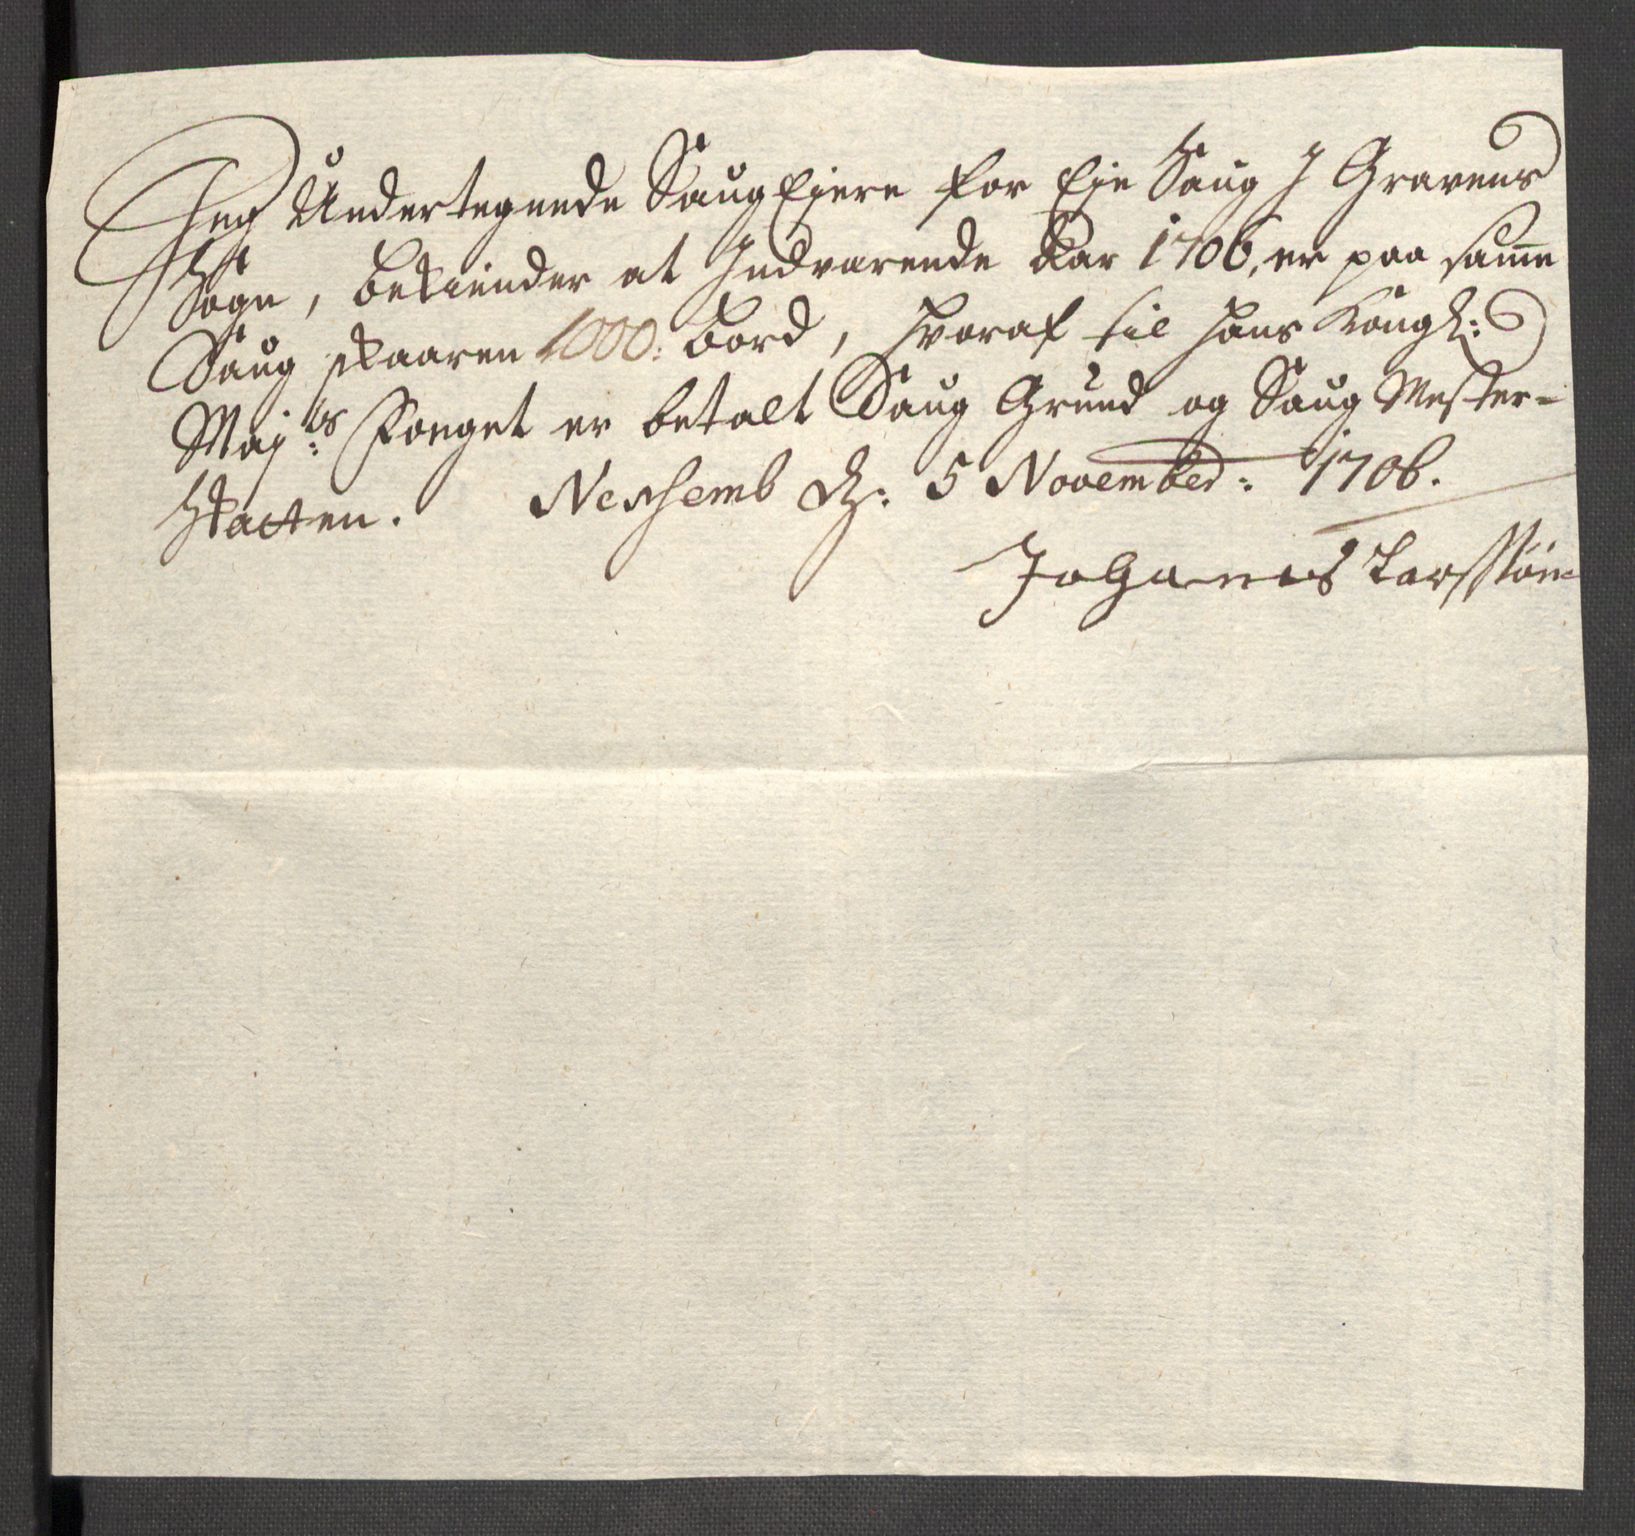 Jeg Undertegnede Saug Ejere for Eje Saug J Gravens
Sogn, bekiender at Indvarende Aar 1706, er paa samme
Saug skaaren 1000: bord, hvoraf til hans Kongl:
Maj:ts Foeget er betalt Saug Grund og Saug Mester-
Skatten. Neshemb d: 5 November: 1706.
Johanes Larssøn